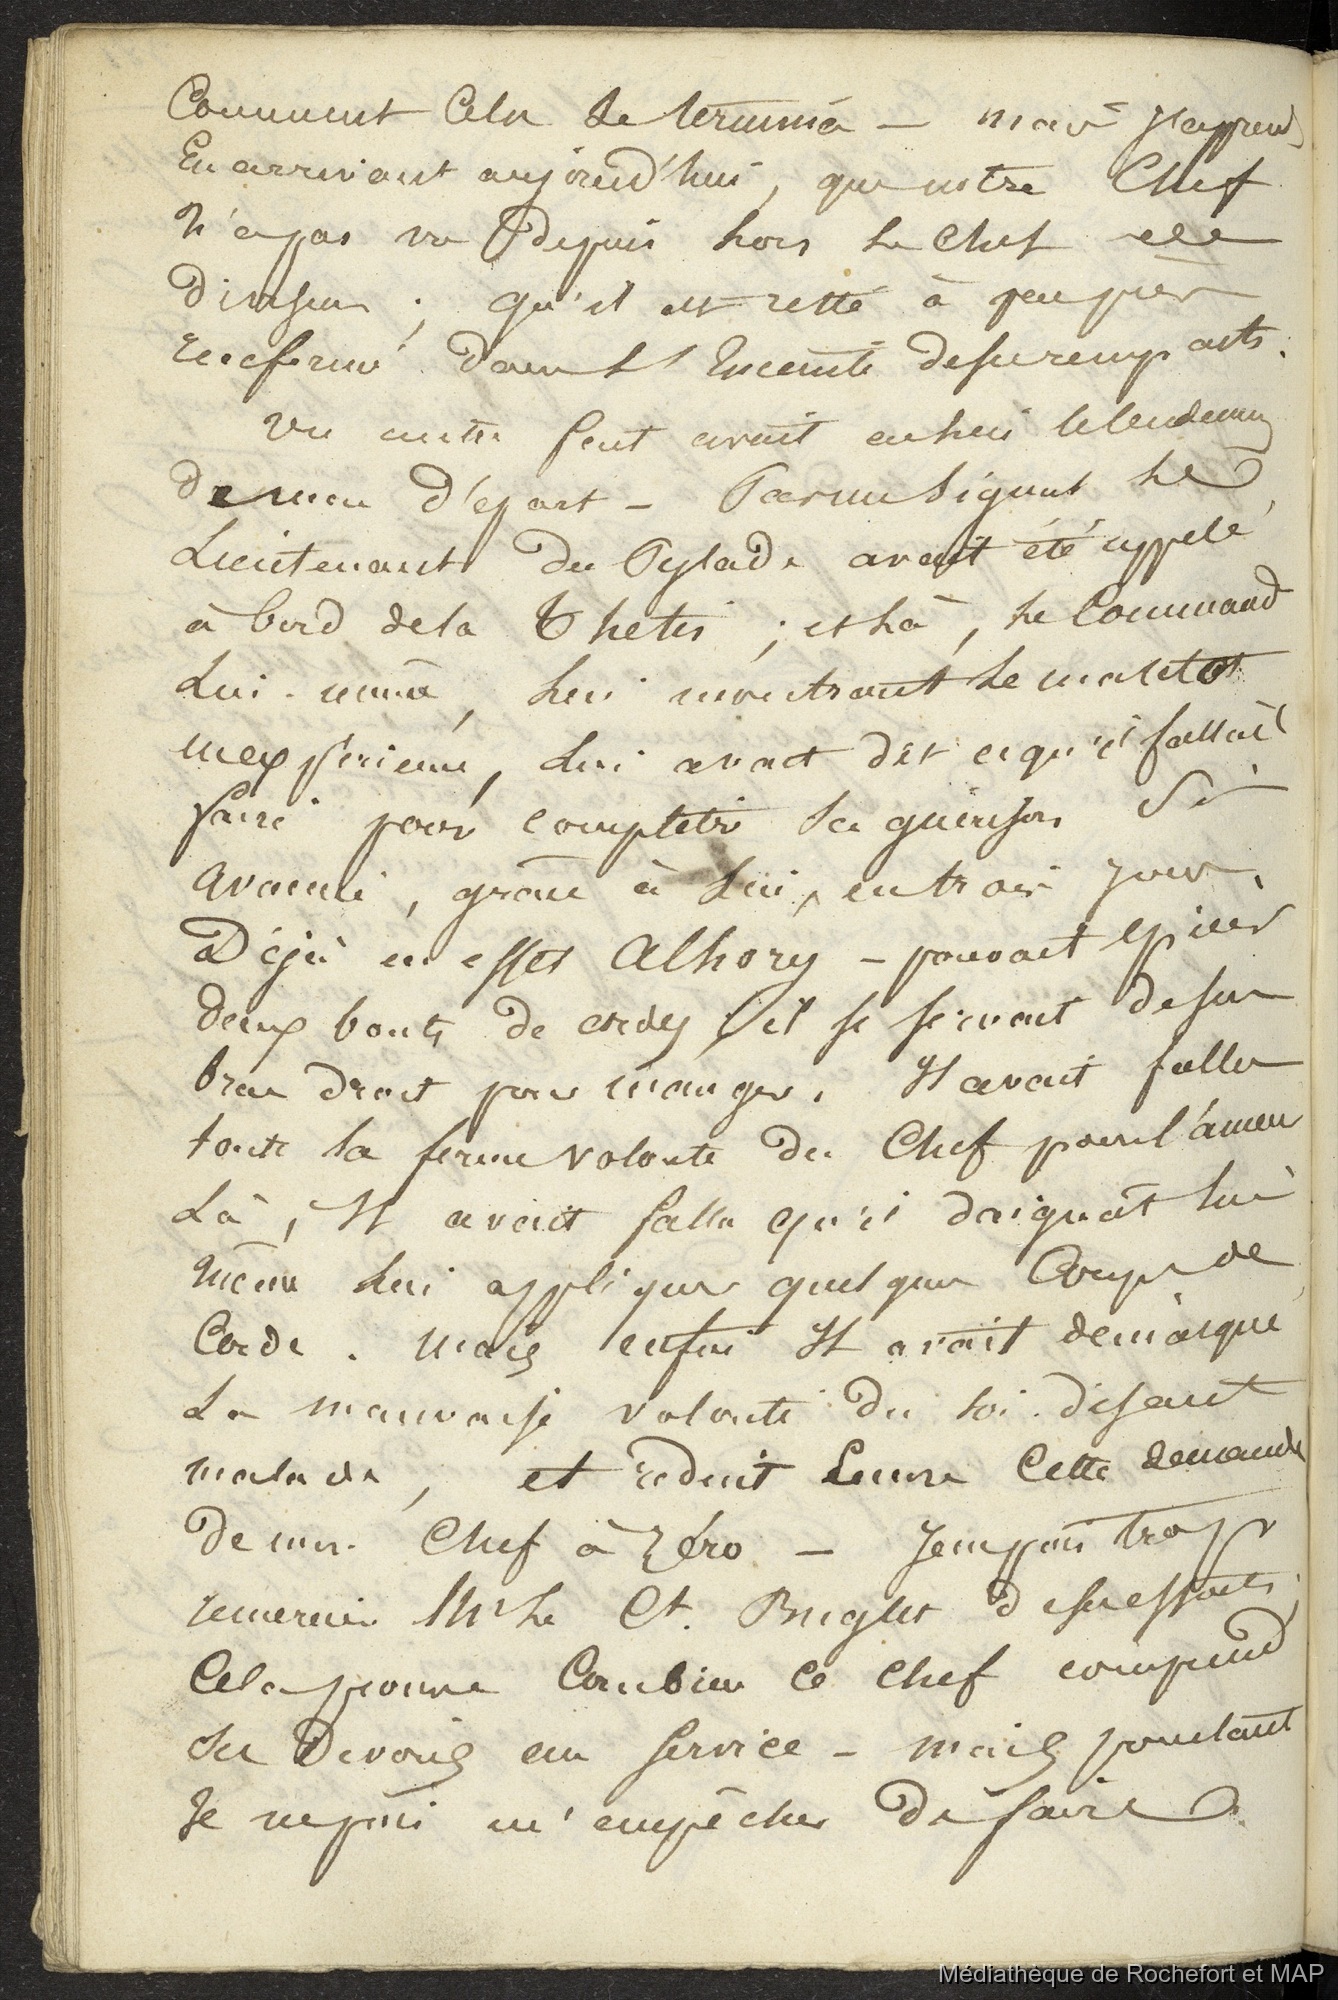 Comment Cela se termina — mais J'apprend
En arrivant aujourd'hui, que notre Chef
N'a pas vu depuis lors le Chef
; qu'il est resté à peu près
renfermé dans l'Enceinte de ses remparts.
Un autre fait avait eu lieu le lendemain
de mon départ — Par un Signal le
Lieutenant du Pylade avait été appelé
à bord de la Thetis ; et là, le Command
Lui-même, lui montrant le matelot
, lui avait dit ce qu'il fallait
faire pour completer sa guérison Si
avancée, grâce à Lui, en trois jours.
Déjà en effet Alhory — pouvait épicer
deux bouts de corde, il se servait de son
bras droit pour manger. Il avait fallu
toute la ferme volonté du Chef pour l'amener
Là, Il avait fallu qu'il daignât lui
Même lui appliquer quelques Coups de
Corde. Mais enfin Il avait démasqué
La mauvaise volonté du soi-disant
malade, et réduit Encore Cette demande
de mon Chef à Zéro — Je ne puis trop
remercier Mr Le Ct. de ses efforts,
Cela prouve Combien Ce Chef comprend
Ses Devoirs au Service — mais pourtant
Je ne puis m'empêcher De faire
Médiathèque de Rochefort et MAP